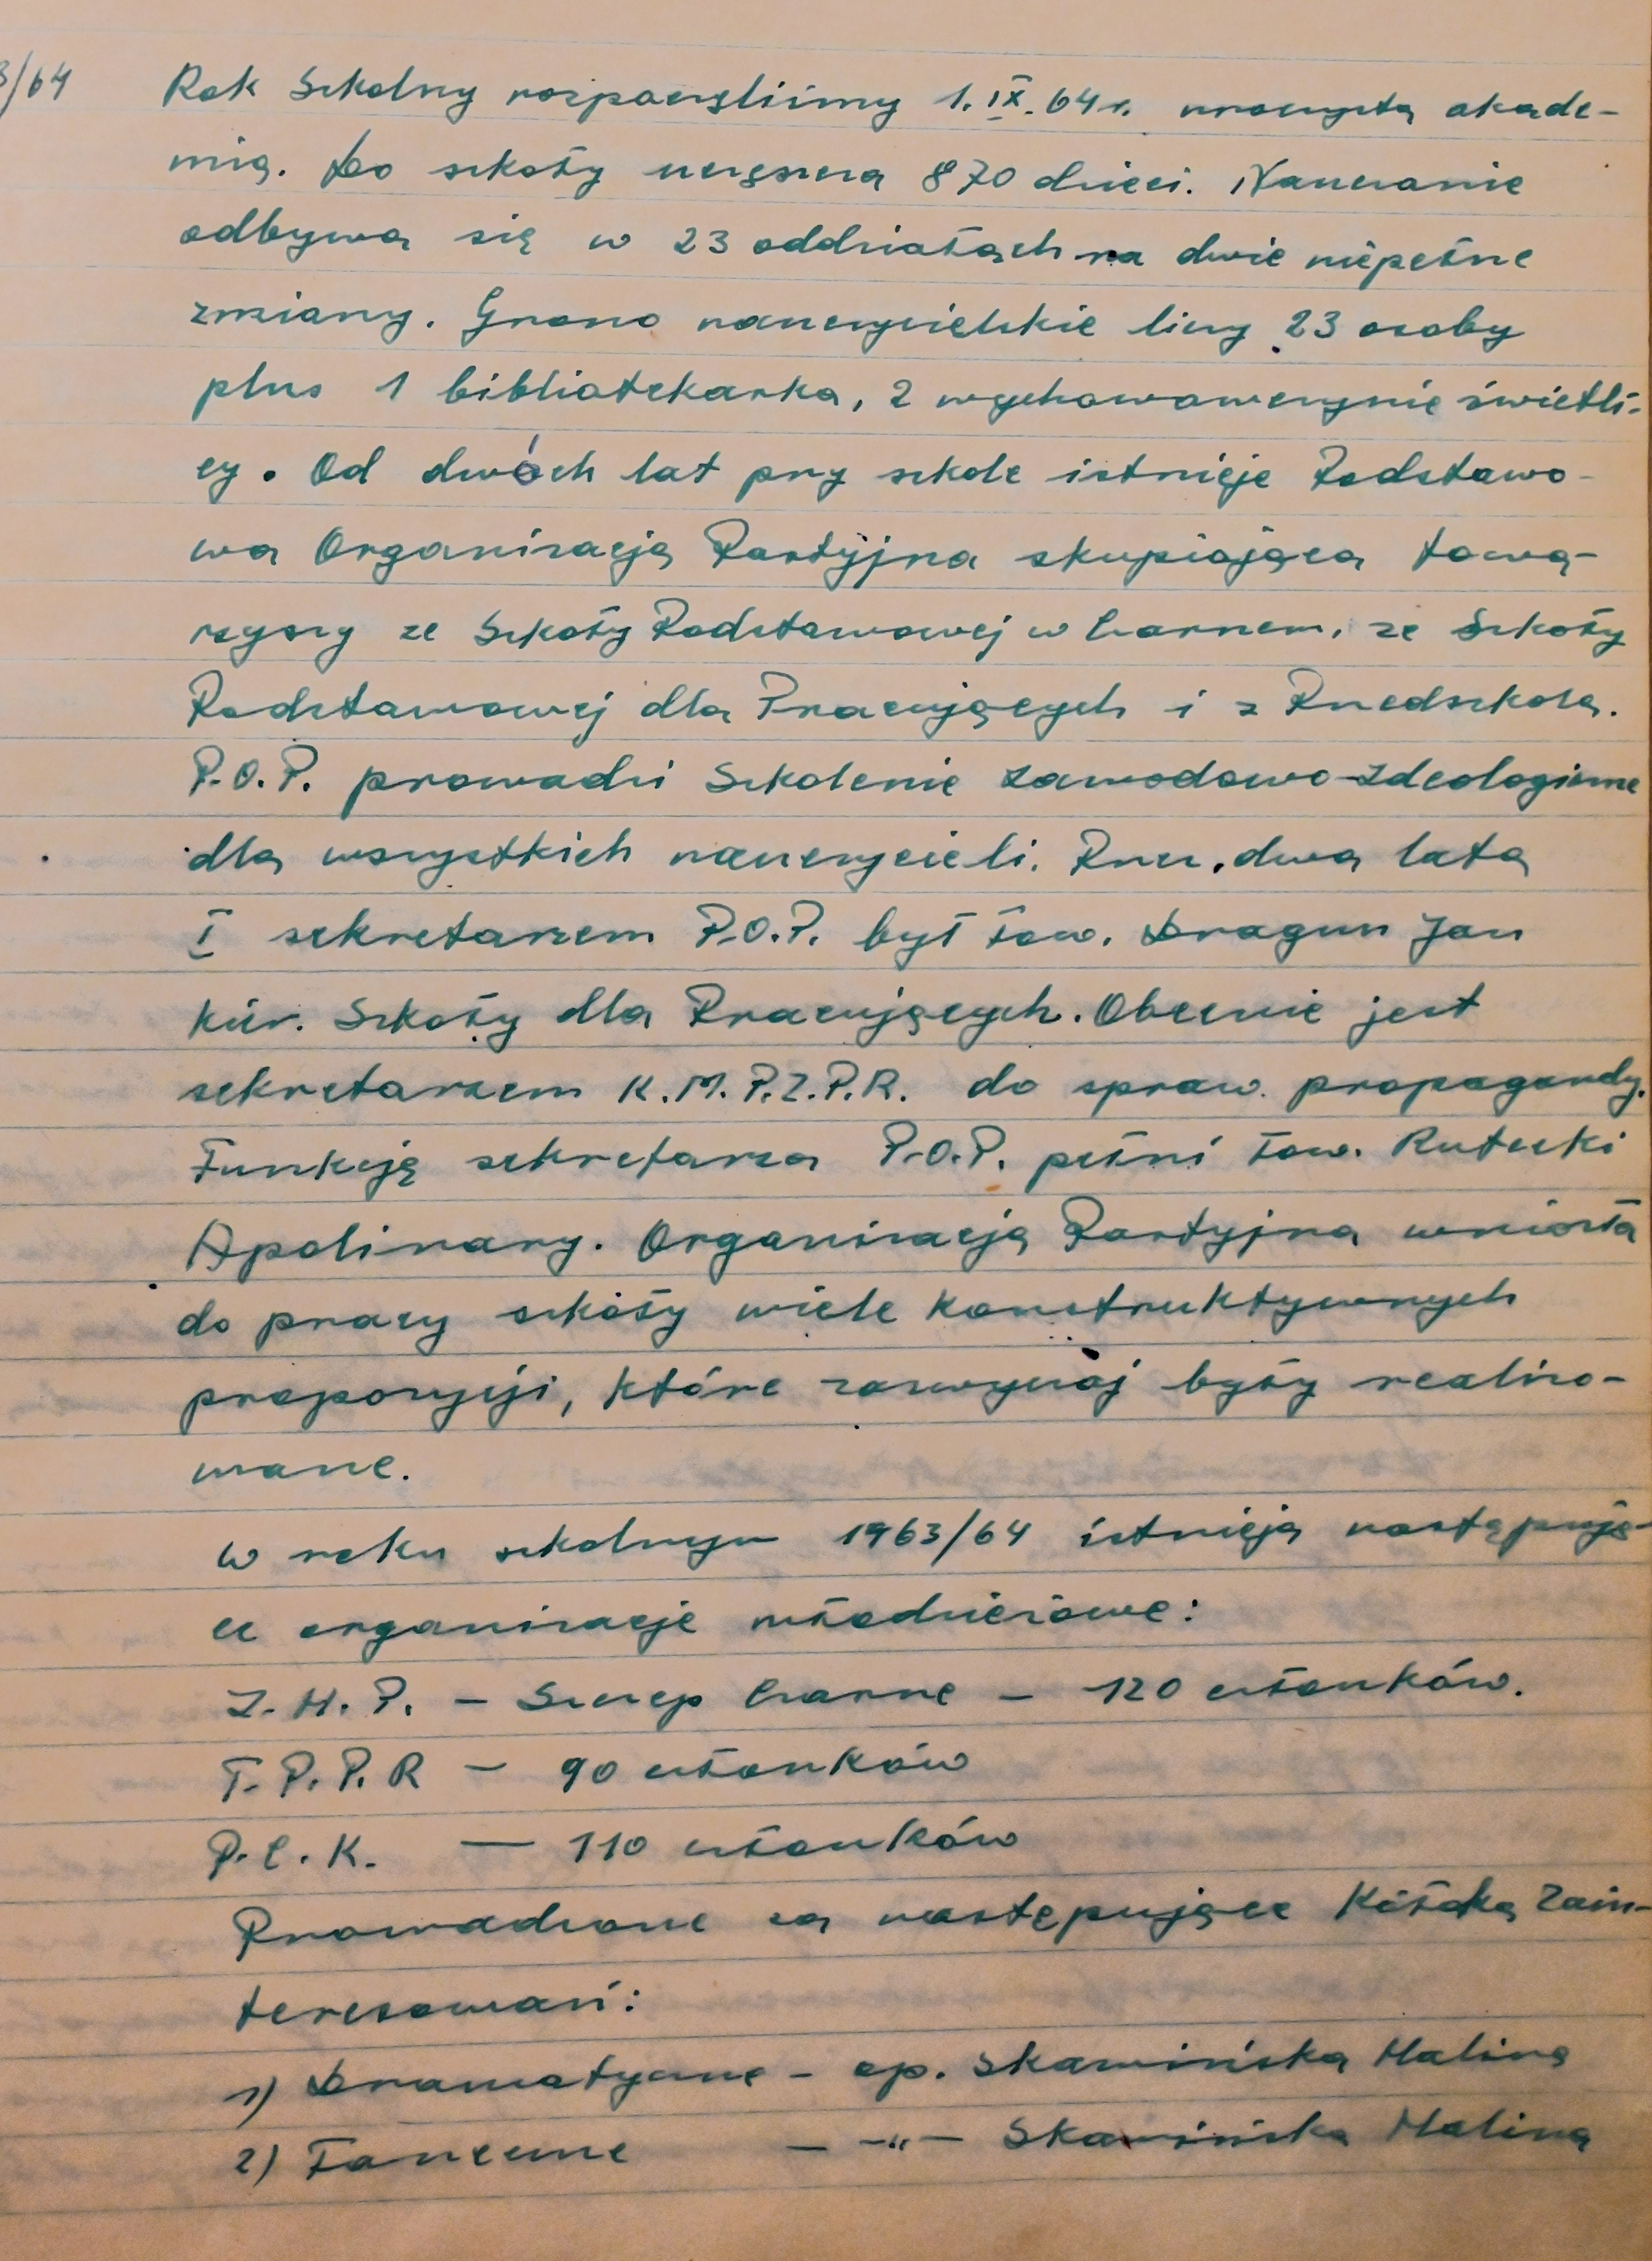 3/64
Rok Szkolny rozpoczęliśmy 1.IX.64r. uroczystą akade-
mią. Do szkoły uczęszcza 870 dzieci. Nauczanie
odbywa się w 23 oddziałach na dwie niepełne
zmiany. Grono nauczycielskie liczy 23 osoby
plus 1 bibliotekarka, 2 wychowawczynie świetli-
cy. Od dwóch lat przy szkole istnieje Podstawo-
wa Organizacja Partyjna skupiająca towa-
rzyszy ze Szkoły Podstawowej w Czarnem, ze Szkoły
Podstawowej dla Pracujących i z Przedszkola.
P.O.P. prowadzi Szkolenie Zawodowo-Ideologiczne
dla wszystkich nauczycieli. Przez dwa lata
I sekretarzem P.O.P. był tow. Dragun Jan
kier. Szkoły dla Pracujących. Obecnie jest
sekretarzem K.M.P.Z.P.R. do spraw propagandy.
Funkcję sekretarza P.O.P. pełni tow. Rutecki
Apolinary. Organizacja Partyjna wniosła
do pracy szkoły wiele konstruktywnych
propozycji, które zazwyczaj były realizo-
wane.
W roku szkolnym 1963/64 istnieją następują-
ce organizacje młodzieżowe:
Z.H.P. – Szczep Czarne – 120 członków.
T.P.P.R – 90 członków
P.C.K. — 110 członków
Prowadzone są następujące Kółka Zain-
teresowań:
1) Dramatyczne – op. Skawińska Halina
2) Taneczne – -„- Skawińska Halina